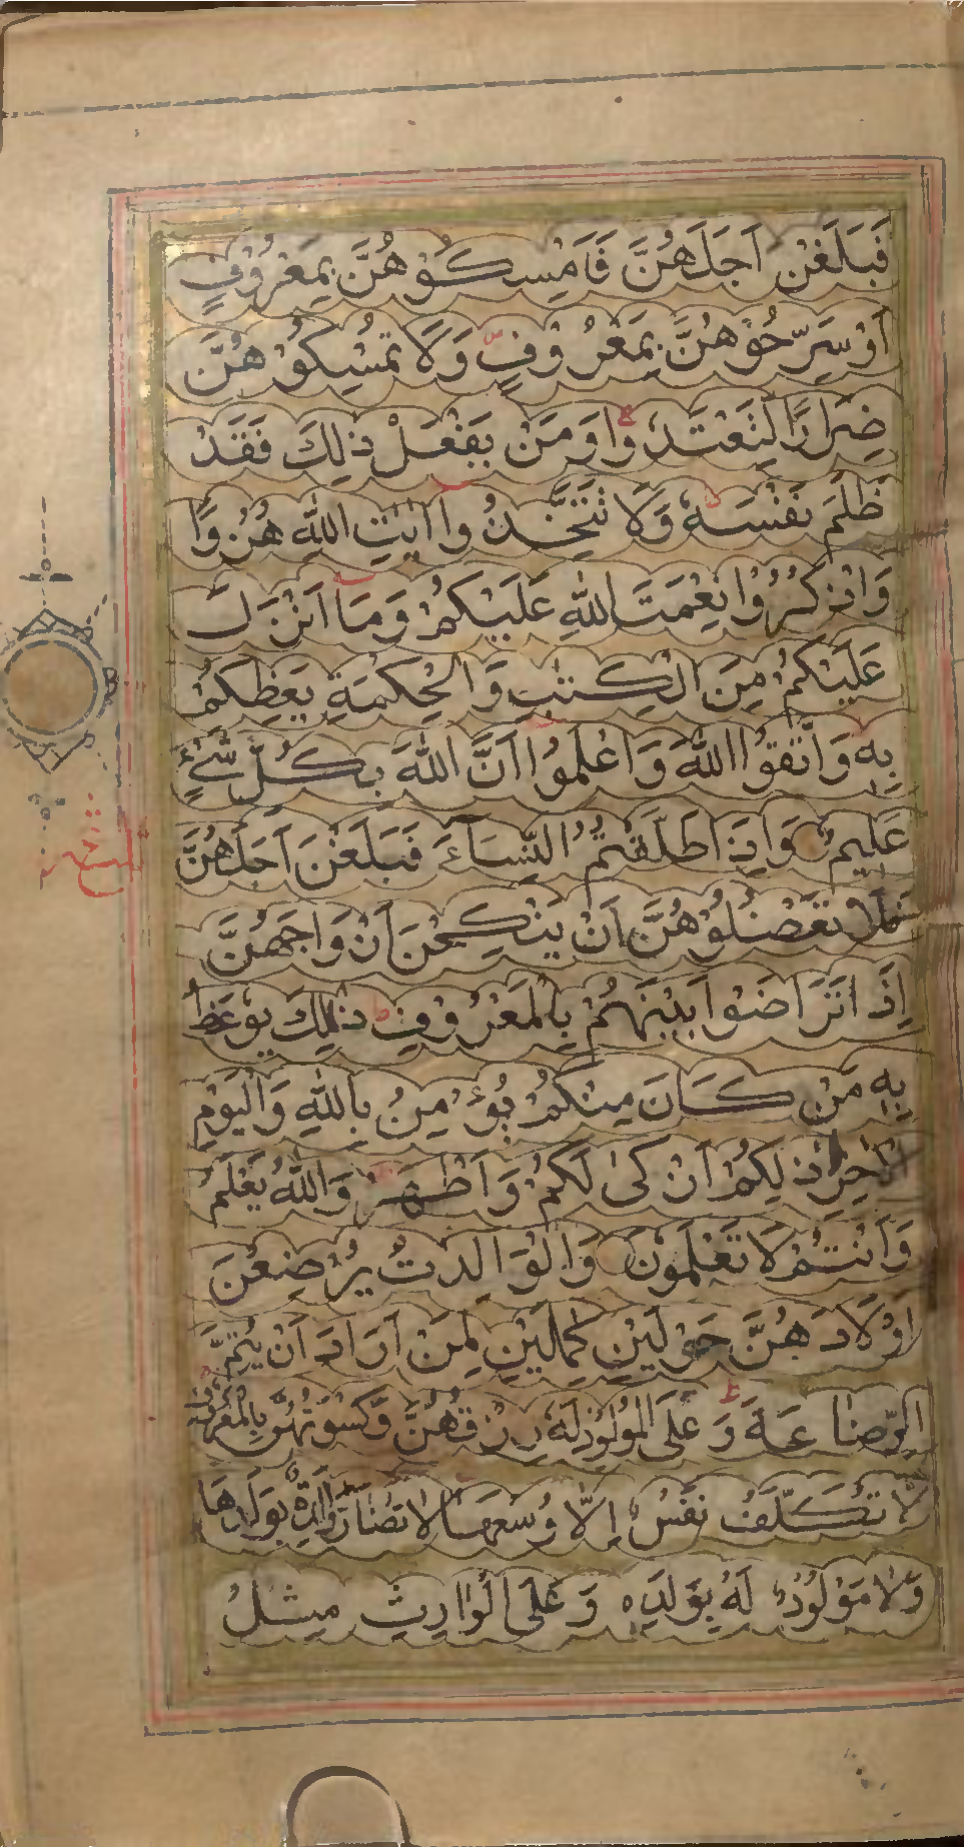 فَبَلَغْنَ اَجَلَهُنَّ فَاَمْسِكُوْهُنَّ بِمَعْرُوْفٍ
اَوْ سَرِّحُوْهُنَّ بِمَعْرُوْفٍ وَلَا تُمْسِكُوْهُنَّ
ضِرَارًا لِّتَعْتَدُوْا وَمَنْ يَفْعَلْ ذٰلِكَ فَقَدْ
ظَلَمَ نَفْسَهٗ وَلَا تَتَّخِذُوْا اٰيٰتِ اللّٰهِ هُزُوًا
وَاذْكُرُوْا نِعْمَتَ اللّٰهِ عَلَيْكُمْ وَمَا اَنْزَلَ
عَلَيْكُمْ مِنَ الْكِتٰبِ وَالْحِكْمَةِ يَعِظُكُمْ
بِهٖ وَاتَّقُوا اللّٰهَ وَاعْلَمُوْا اَنَّ اللّٰهَ بِكُلِّ شَيْءٍ
عَلِيْمٌ وَاِذَا طَلَّقْتُمُ النِّسَآءَ فَبَلَغْنَ اَجَلَهُنَّ
فَلَا تَعْضُلُوْهُنَّ اَنْ يَنْكِحْنَ اَزْوَاجَهُنَّ
اِذَا تَرَاضَوْا بَيْنَهُمْ بِالْمَعْرُوْفِ ذٰلِكَ يُوْعَظُ
بِهٖ مَنْ كَانَ مِنْكُمْ يُؤْمِنُ بِاللّٰهِ وَالْيَوْمِ
الْاٰخِرِ ذٰلِكُمْ اَزْكٰى لَكُمْ وَاَطْهَرُ وَاللّٰهُ يَعْلَمُ
وَاَنْتُمْ لَا تَعْلَمُوْنَ وَالْوَالِدٰتُ يُرْضِعْنَ
اَوْلَادَهُنَّ حَوْلَيْنِ كَامِلَيْنِ لِمَنْ اَرَادَ اَنْ يُّتِمَّ
الرَّضَاعَةَ وَعَلَى الْمَوْلُوْدِ لَهٗ رِزْقُهُنَّ وَكِسْوَتُهُنَّ بِالْمَعْرُوْفِ
لَا تُكَلَّفُ نَفْسٌ اِلَّا وُسْعَهَا لَا تُضَآرَّ وَالِدَةٌ بِوَلَدِهَا
وَلَا مَوْلُوْدٌ لَهٗ بِوَلَدِهٖ وَعَلَى الْوَارِثِ مِثْلُ